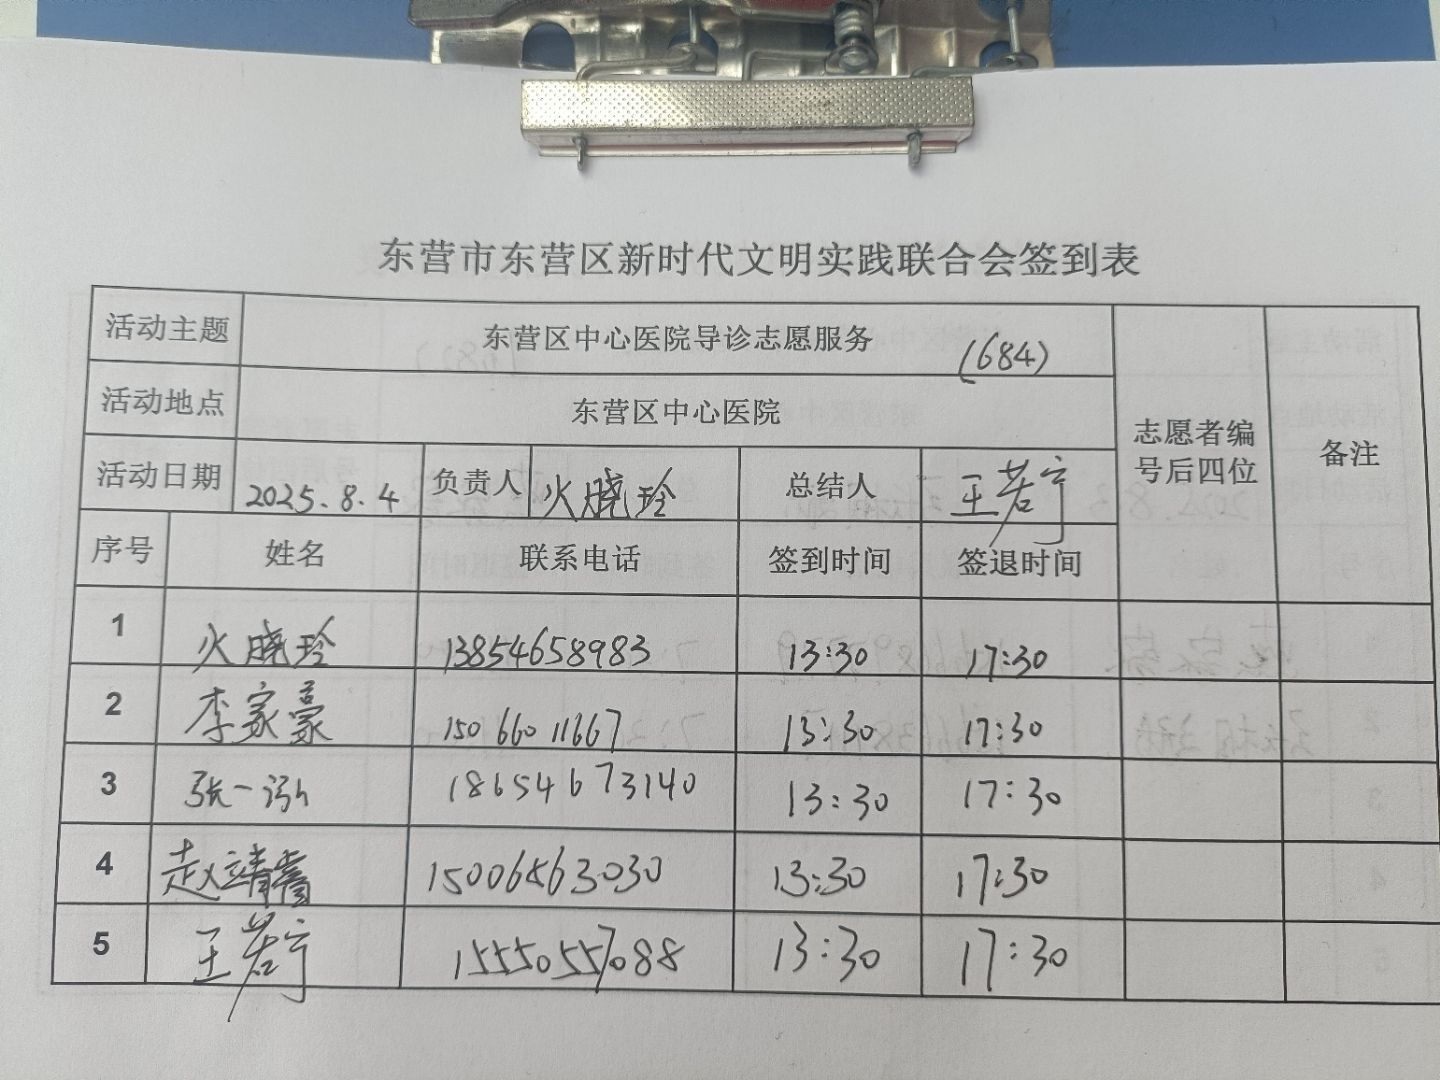 东营市东营区新时代文明实践联合会签到表
活动主题 东营区中心医院导诊志愿服务 (684)
活动地点 东营区中心医院
志愿者编号后四位 备注
活动日期 2025.8.4 负责人 火晓玲 总结人 王若宁
序号 姓名 联系电话 签到时间 签退时间
1 火晓玲 13854658983 13:30 17:30
2 李家豪 15066011667 13:30 17:30
3 张一泓 18654673140 13:30 17:30
4 赵靖 13:30 17:30
5 王若宁 15550557088 13:30 17:30